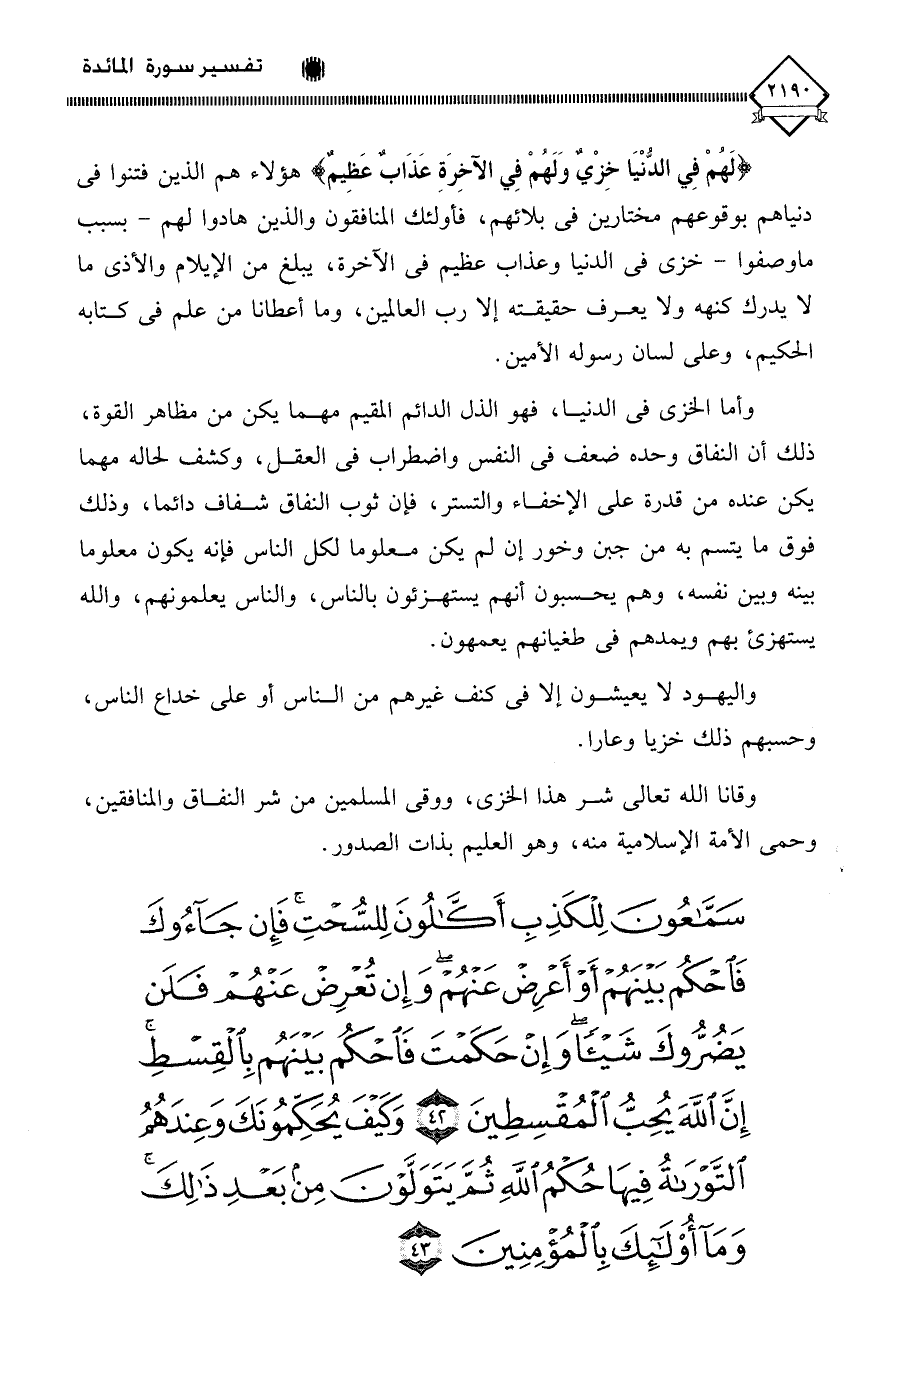 ٢١٩٠
تفسير سورة المائدة
﴿لَهُمْ فِي الدُّنْيَا خِزْيٌ وَلَهُمْ فِي الآخِرَةِ عَذَابٌ عَظِيمٌ﴾ هؤلاء هم الذين فتنوا فى
دنياهم بوقوعهم مختارين فى بلائهم، فأولئك المنافقون والذين هادوا لهم - بسبب
ماوصفوا - خزى فى الدنيا وعذاب عظيم فى الآخرة، يبلغ من الإيلام والأذى ما
لا يدرك كنهه ولا يعرف حقيقته إلا رب العالمين، وما أعطانا من علم فى كتابه
الحكيم، وعلى لسان رسوله الأمين.
وأما الخزى فى الدنيا، فهو الذل الدائم المقيم مهما يكن من مظاهر القوة،
ذلك أن النفاق وحده ضعف فى النفس واضطراب فى العقل، وكشف لحاله مهما
يكن عنده من قدرة على الإخفاء والتستر، فإن ثوب النفاق شفاف دائما، وذلك
فوق ما يتسم به من جبن وخور إن لم يكن معلوما لكل الناس فإنه يكون معلوما
بينه وبين نفسه، وهم يحسبون أنهم يستهزئون بالناس، والناس يعلمونهم، والله
يستهزئ بهم ويمدهم فى طغيانهم يعمهون.
واليهود لا يعيشون إلا فى كنف غيرهم من الناس أو على خداع الناس،
وحسبهم ذلك خزيا وعارا.
وقانا الله تعالى شر هذا الخزى، ووقى المسلمين من شر النفاق والمنافقين،
وحمى الأمة الإسلامية منه، وهو العليم بذات الصدور.
سَمَّٰعُونَ لِلۡكَذِبِ أَكَّٰلُونَ لِلسُّحۡتِۚ فَإِن جَآءُوكَ
فَٱحۡكُم بَيۡنَهُمۡ أَوۡ أَعۡرِضۡ عَنۡهُمۡۖ وَإِن تُعۡرِضۡ عَنۡهُمۡ فَلَن
يَضُرُّوكَ شَيۡـٔٗاۖ وَإِنۡ حَكَمۡتَ فَٱحۡكُم بَيۡنَهُم بِٱلۡقِسۡطِۚ
إِنَّ ٱللَّهَ يُحِبُّ ٱلۡمُقۡسِطِينَ ٤٢ وَكَيۡفَ يُحَكِّمُونَكَ وَعِندَهُمُ
ٱلتَّوۡرَىٰةُ فِيهَا حُكۡمُ ٱللَّهِ ثُمَّ يَتَوَلَّوۡنَ مِنۢ بَعۡدِ ذَٰلِكَۚ
وَمَآ أُوْلَٰٓئِكَ بِٱلۡمُؤۡمِنِينَ ٤٣